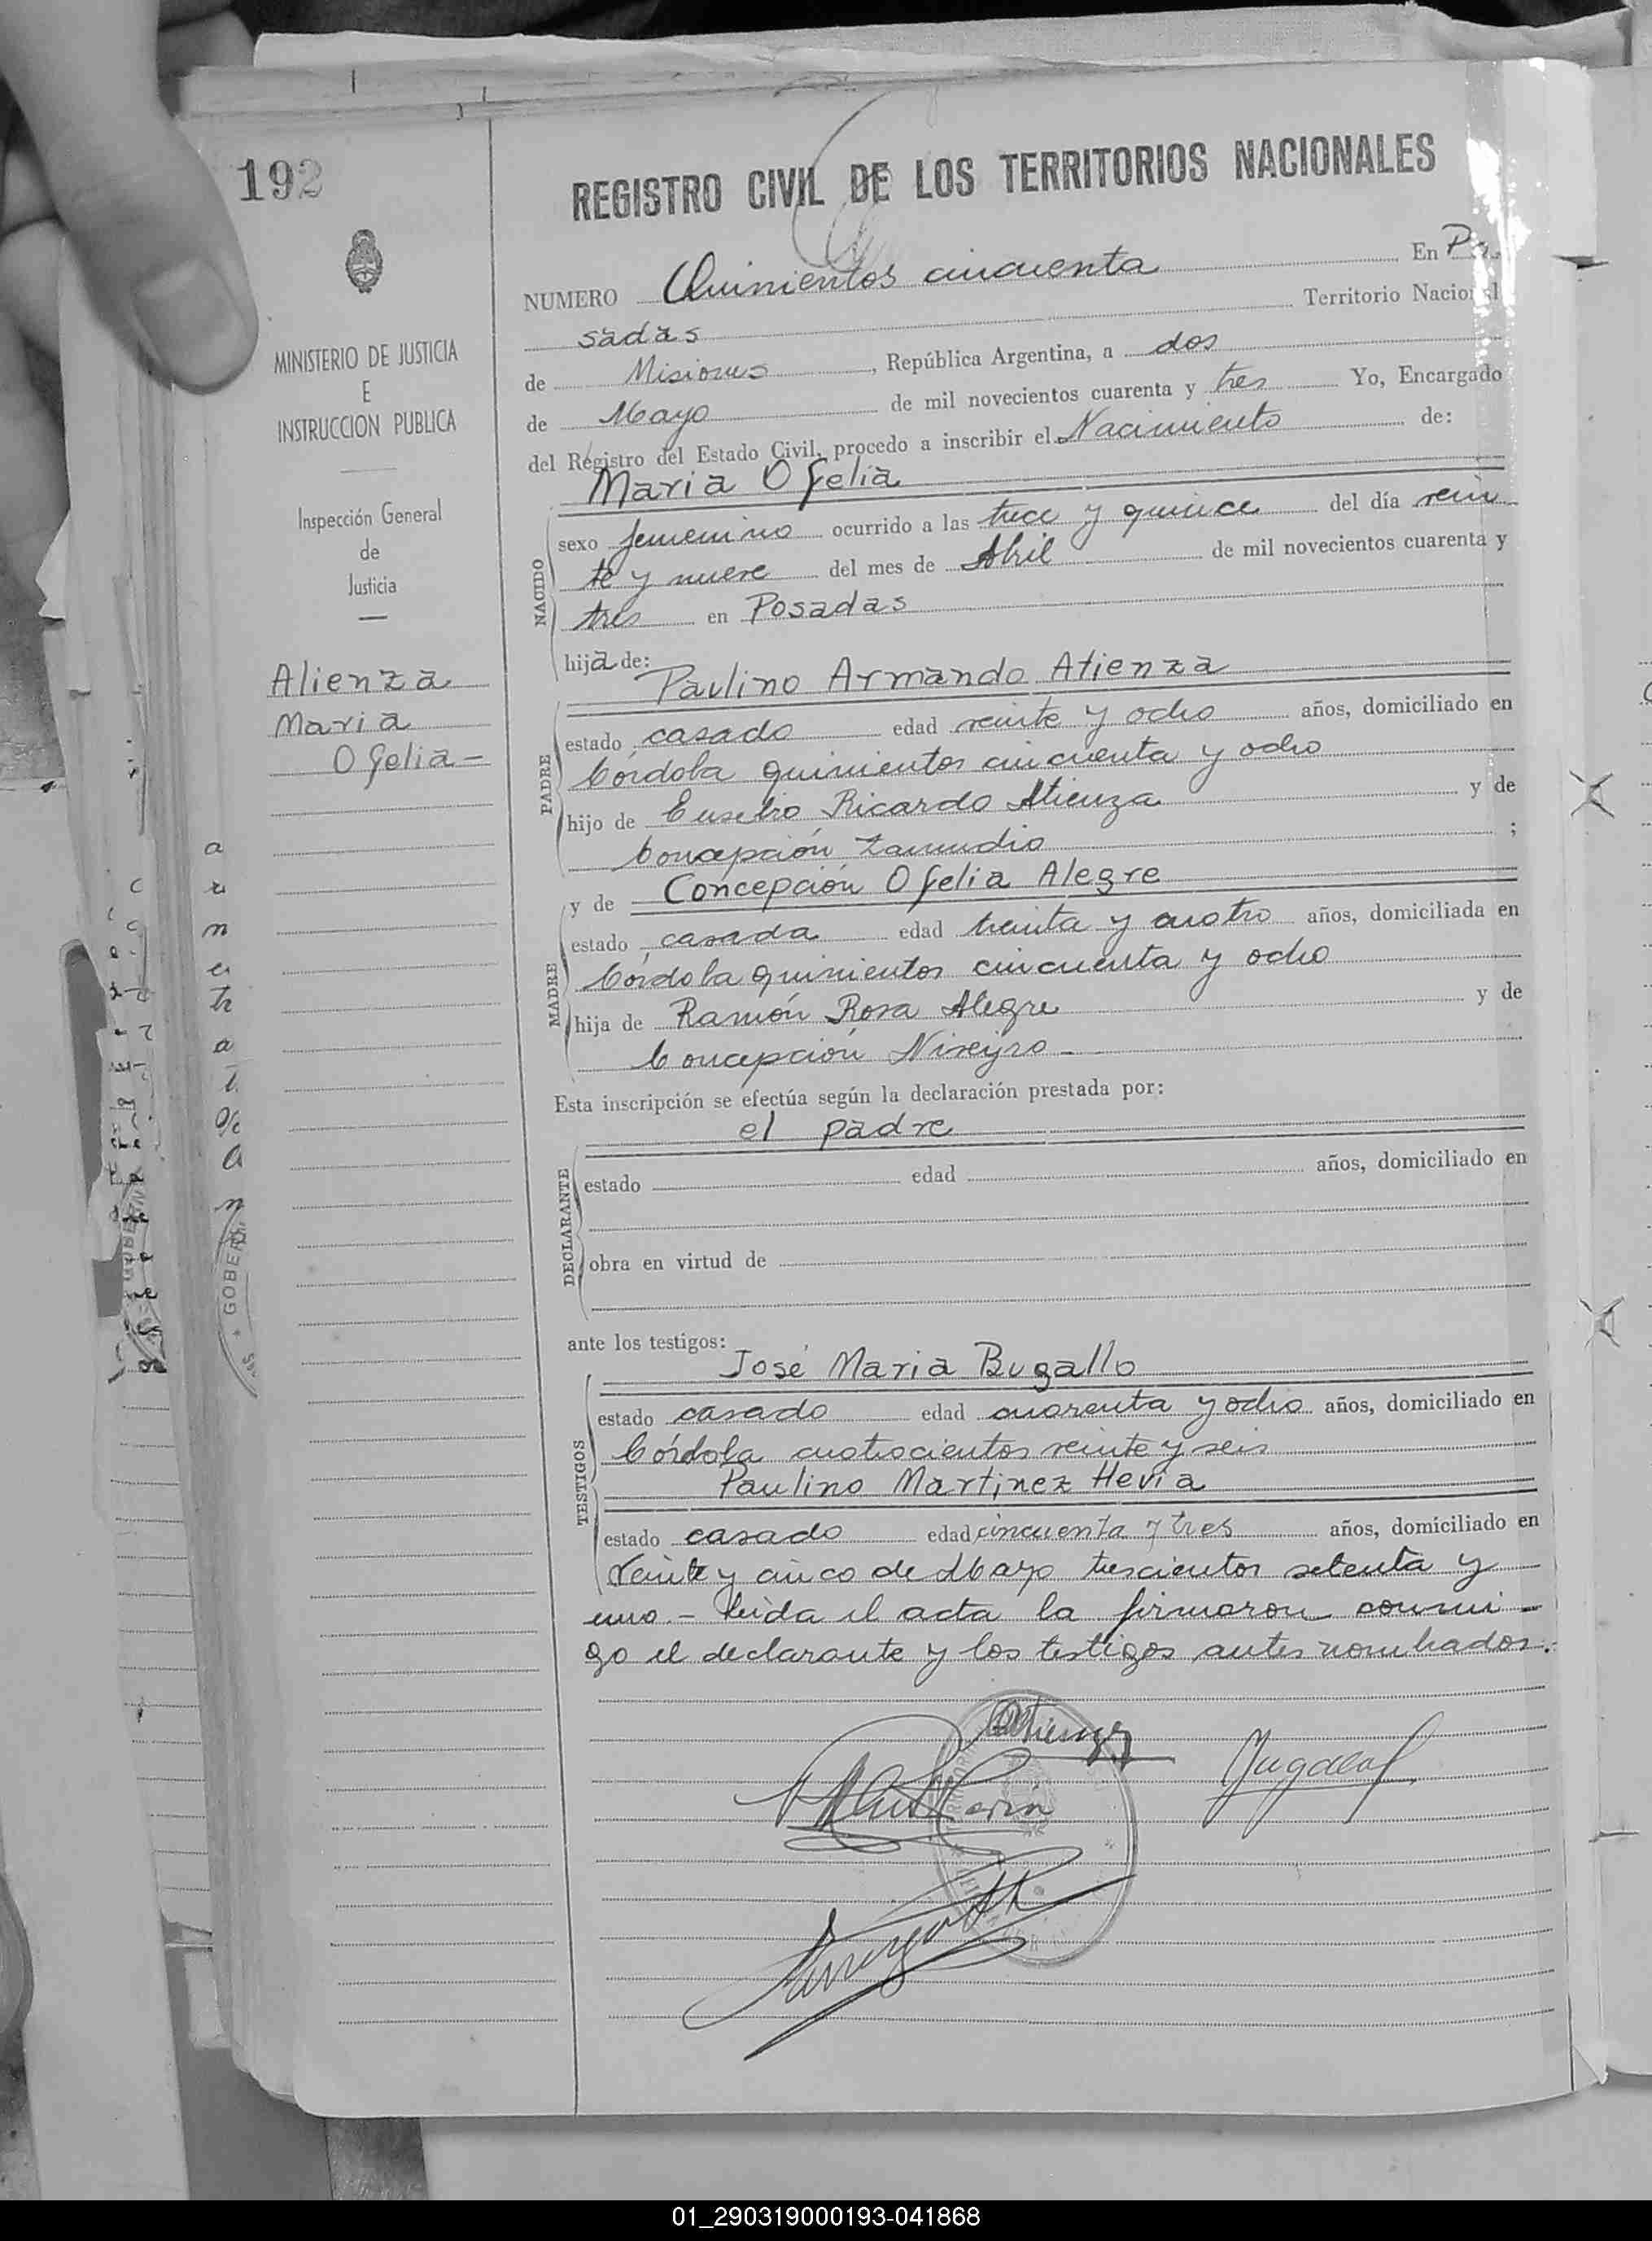 192
MINISTERIO DE JUSTICIA
E
INSTRUCCION PUBLICA
Inspección General
de
Justicia
Alienza
Maria
Ofelia-
REGISTRO CIVIL DE LOS TERRITORIOS NACIONALES
NUMERO Quinientos cincuenta En Po
sadas Territorio Nacional
de Misiones, República Argentina, a dos
de Mayo de mil novecientos cuarenta y tres Yo, Encargado
del Registro del Estado Civil, procedo a inscribir el Nacimiento de:
Maria Ofelia
NACIDO
sexo femenino ocurrido a las trece y quince del día vein
te y nueve del mes de Abril de mil novecientos cuarenta y
tres en Posadas
hija de:
Paulino Armando Atienza
PADRE
estado casado edad veinte y ocho años, domiciliado en
Córdoba quinientos cincuenta y ocho
hijo de Eusebio Ricardo Atienza y de
Concepción Zamudio ;
y de Concepción Ofelia Alegre
MADRE
estado casada edad treinta y cuatro años, domiciliada en
Córdoba quinientos cincuenta y ocho
hija de Ramón Rosa Alegre y de
Concepción Niveyro-
Esta inscripción se efectúa según la declaración prestada por:
el padre
DECLARANTE
estado edad años, domiciliado en
obra en virtud de
ante los testigos:
José Maria Bugallo
TESTIGOS
estado casado edad cuarenta y ocho años, domiciliado en
Córdoba cuatrocientos veinte y seis
Paulino Martinez Hevia
estado casado edad cincuenta y tres años, domiciliado en
Veinte y cinco de Mayo trescientos setenta y
uno.- Leida el acta la firmaron conmi-
go el declarante y los testigos antes nombrados.-
Atienza
GOBER
01_290319000193-041868